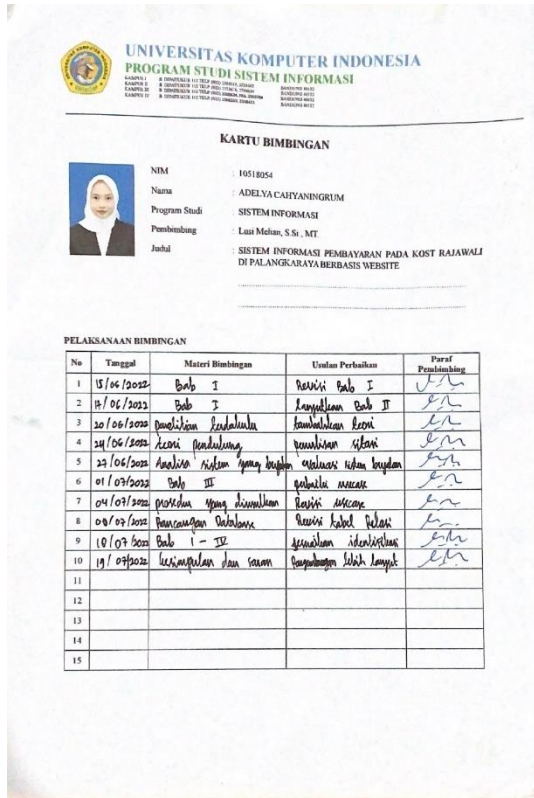 UNIVERSITAS KOMPUTER INDONESIA
PROGRAM STUDI SISTEM INFORMASI
KAMPUS I
KAMPUS II
KAMPUS III
KAMPUS IV
KARTU BIMBINGAN
NIM : 10518054
Nama : ADELYA CAHYANINGRUM
Program Studi : SISTEM INFORMASI
Pembimbing : Lusi Melian, S.Si , MT.
Judul : SISTEM INFORMASI PEMBAYARAN PADA KOST RAJAWALI
DI PALANGKARAYA BERBASIS WEBSITE
PELAKSANAAN BIMBINGAN
No Tanggal Materi Bimbingan Usulan Perbaikan Paraf Pembimbing
1 15/06/2022 Bab I Revisi Bab I
2 17/06/2022 Bab I Lanjutkan Bab II
3 20/06/2022 penelitian terdahulu tambahkan teori
4 24/06/2022 teori pendukung penulisan sitasi
5 27/06/2022 Analisa sistem yang berjalan evaluasi sistem berjalan
6 01/07/2022 Bab III perbaiki usecase
7 04/07/2022 prosedur yang diusulkan Revisi usecase
8 08/07/2022 Rancangan Database Revisi tabel Relasi
9 18/07/2022 Bab I - IV sesuaikan identifikasi
10 19/07/2022 kesimpulan dan saran Pengembangan lebih lanjut
11
12
13
14
15